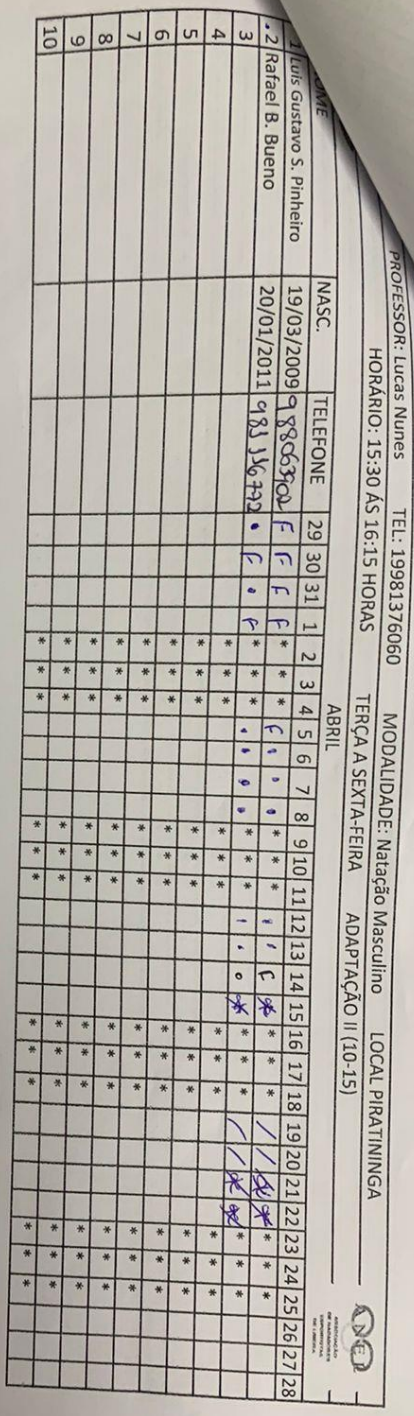 PROFESSOR: Lucas Nunes TEL: 19981376060 MODALIDADE: Natação Masculino LOCAL PIRATININGA
HORÁRIO: 15:30 ÁS 16:15 HORAS TERÇA A SEXTA-FEIRA ADAPTAÇÃO II (10-15)
ABRIL
NASC. TELEFONE 29 30 31 1 2 3 4 5 6 7 8 9 10 11 12 13 14 15 16 17 18 19 20 21 22 23 24 25 26 27 28
1 Luis Gustavo S. Pinheiro 19/03/2009 988063902 F F F F * * * F . . . * * * . . F * * * * / / * * * * *
2 Rafael B. Bueno 20/01/2011 983136772 . F . F * * * . . . . * * * . . o * * * * / / * * * * *
3 * * * * * * * * * * * *
4 * * * * * * * * * * * *
5 * * * * * * * * * * * *
6 * * * * * * * * * * * *
7 * * * * * * * * * * * *
8 * * * * * * * * * * * *
9 * * * * * * * * * * * *
10 * * * * * * * * * * * *